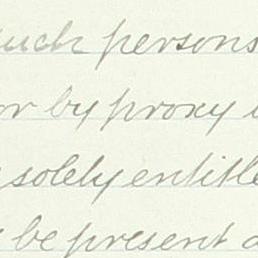 such persons
or by proxy
solely entitle
be present a